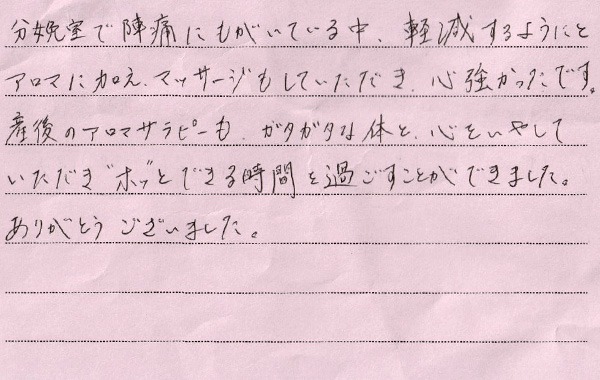 分娩室で陣痛にもがいている中、軽減するようにと
アロマに加え、マッサージもしていただき、心強かったです。
産後のアロマサラピーも、ガタガタな体と、心をいやして
いただき"ホッ"とできる時間を過ごすことができました。
ありがとうございました。